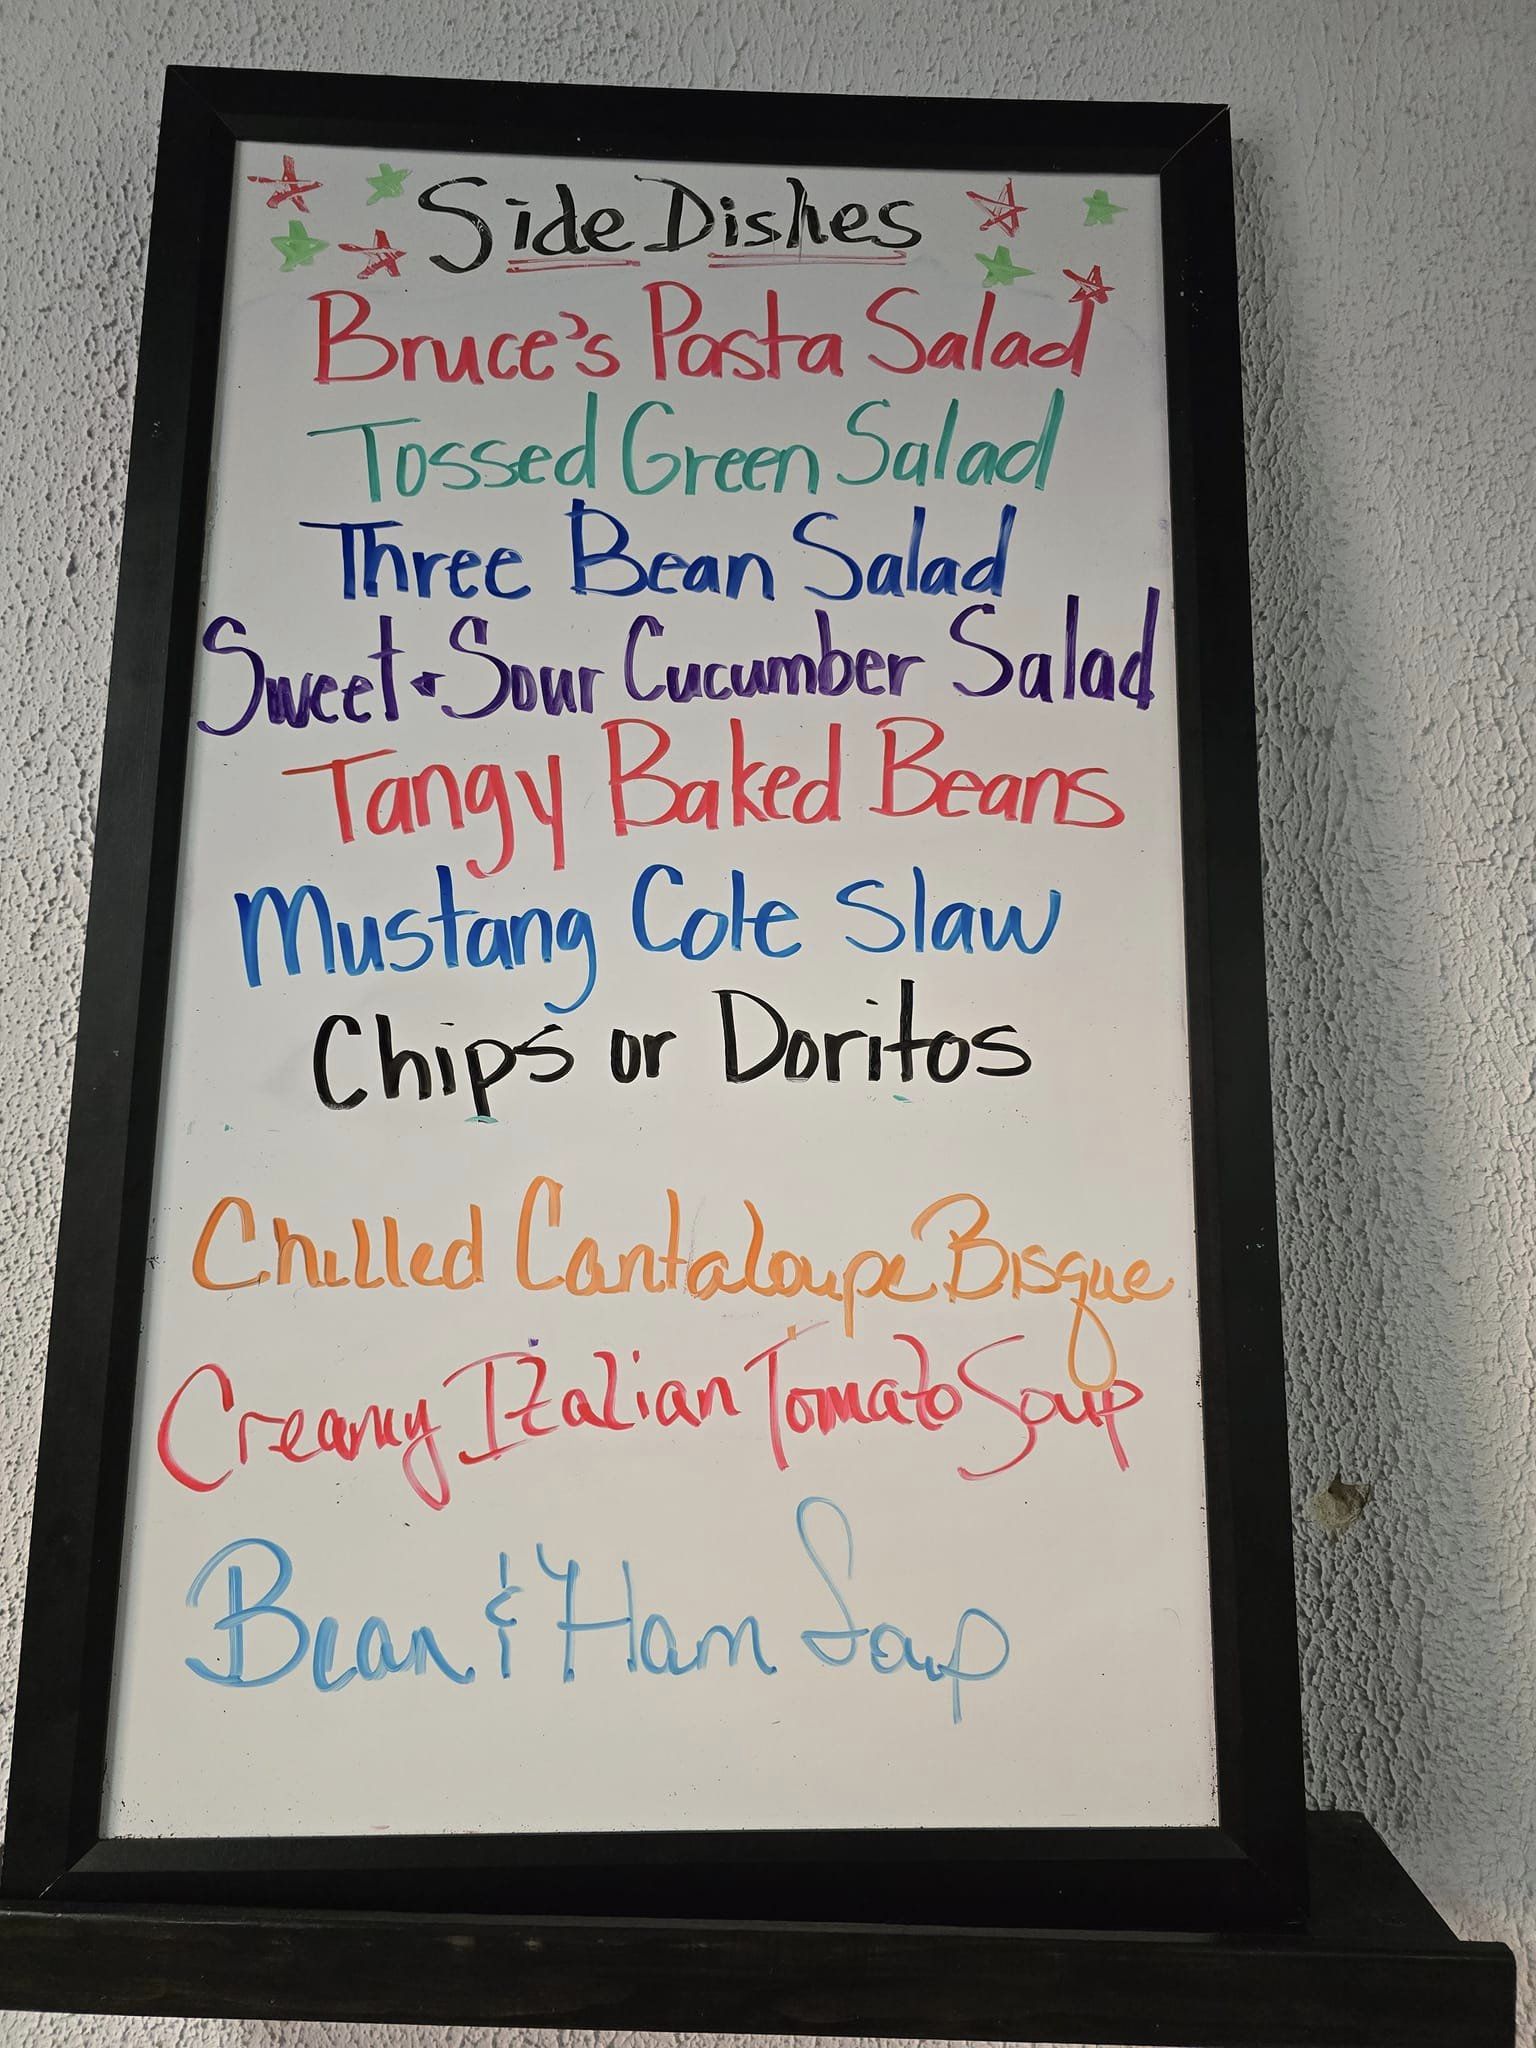 Side Dishes
Bruce's Pasta Salad
Tossed Green Salad
Three Bean Salad
Sweet + Sour Cucumber Salad
Tangy Baked Beans
Mustang Cole Slaw
Chips or Doritos
Chilled Cantaloupe Bisque
Creamy Italian Tomato Soup
Bean & Ham Soup